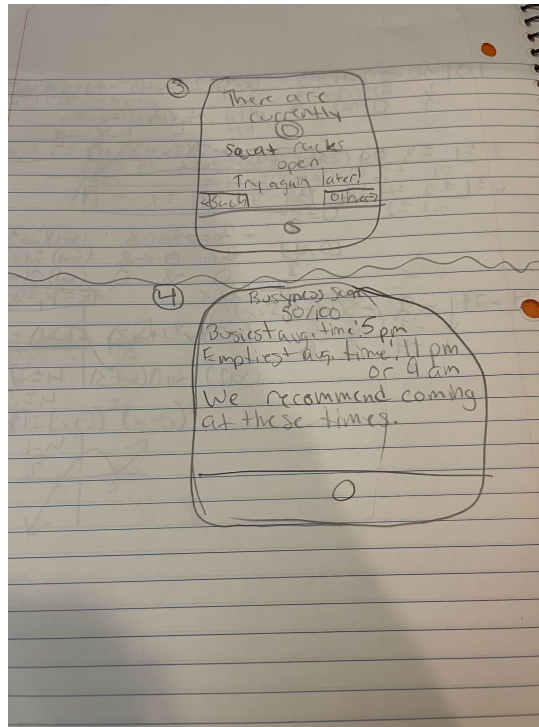 ③
There are
currently
0
Squat racks
open
Try again later!
<Back Other>
④
Busyness Score
50/100
Busiest avg. time: 5 pm
Emptiest avg. time: 11 pm
or 9 am
We recommend coming
at these times.